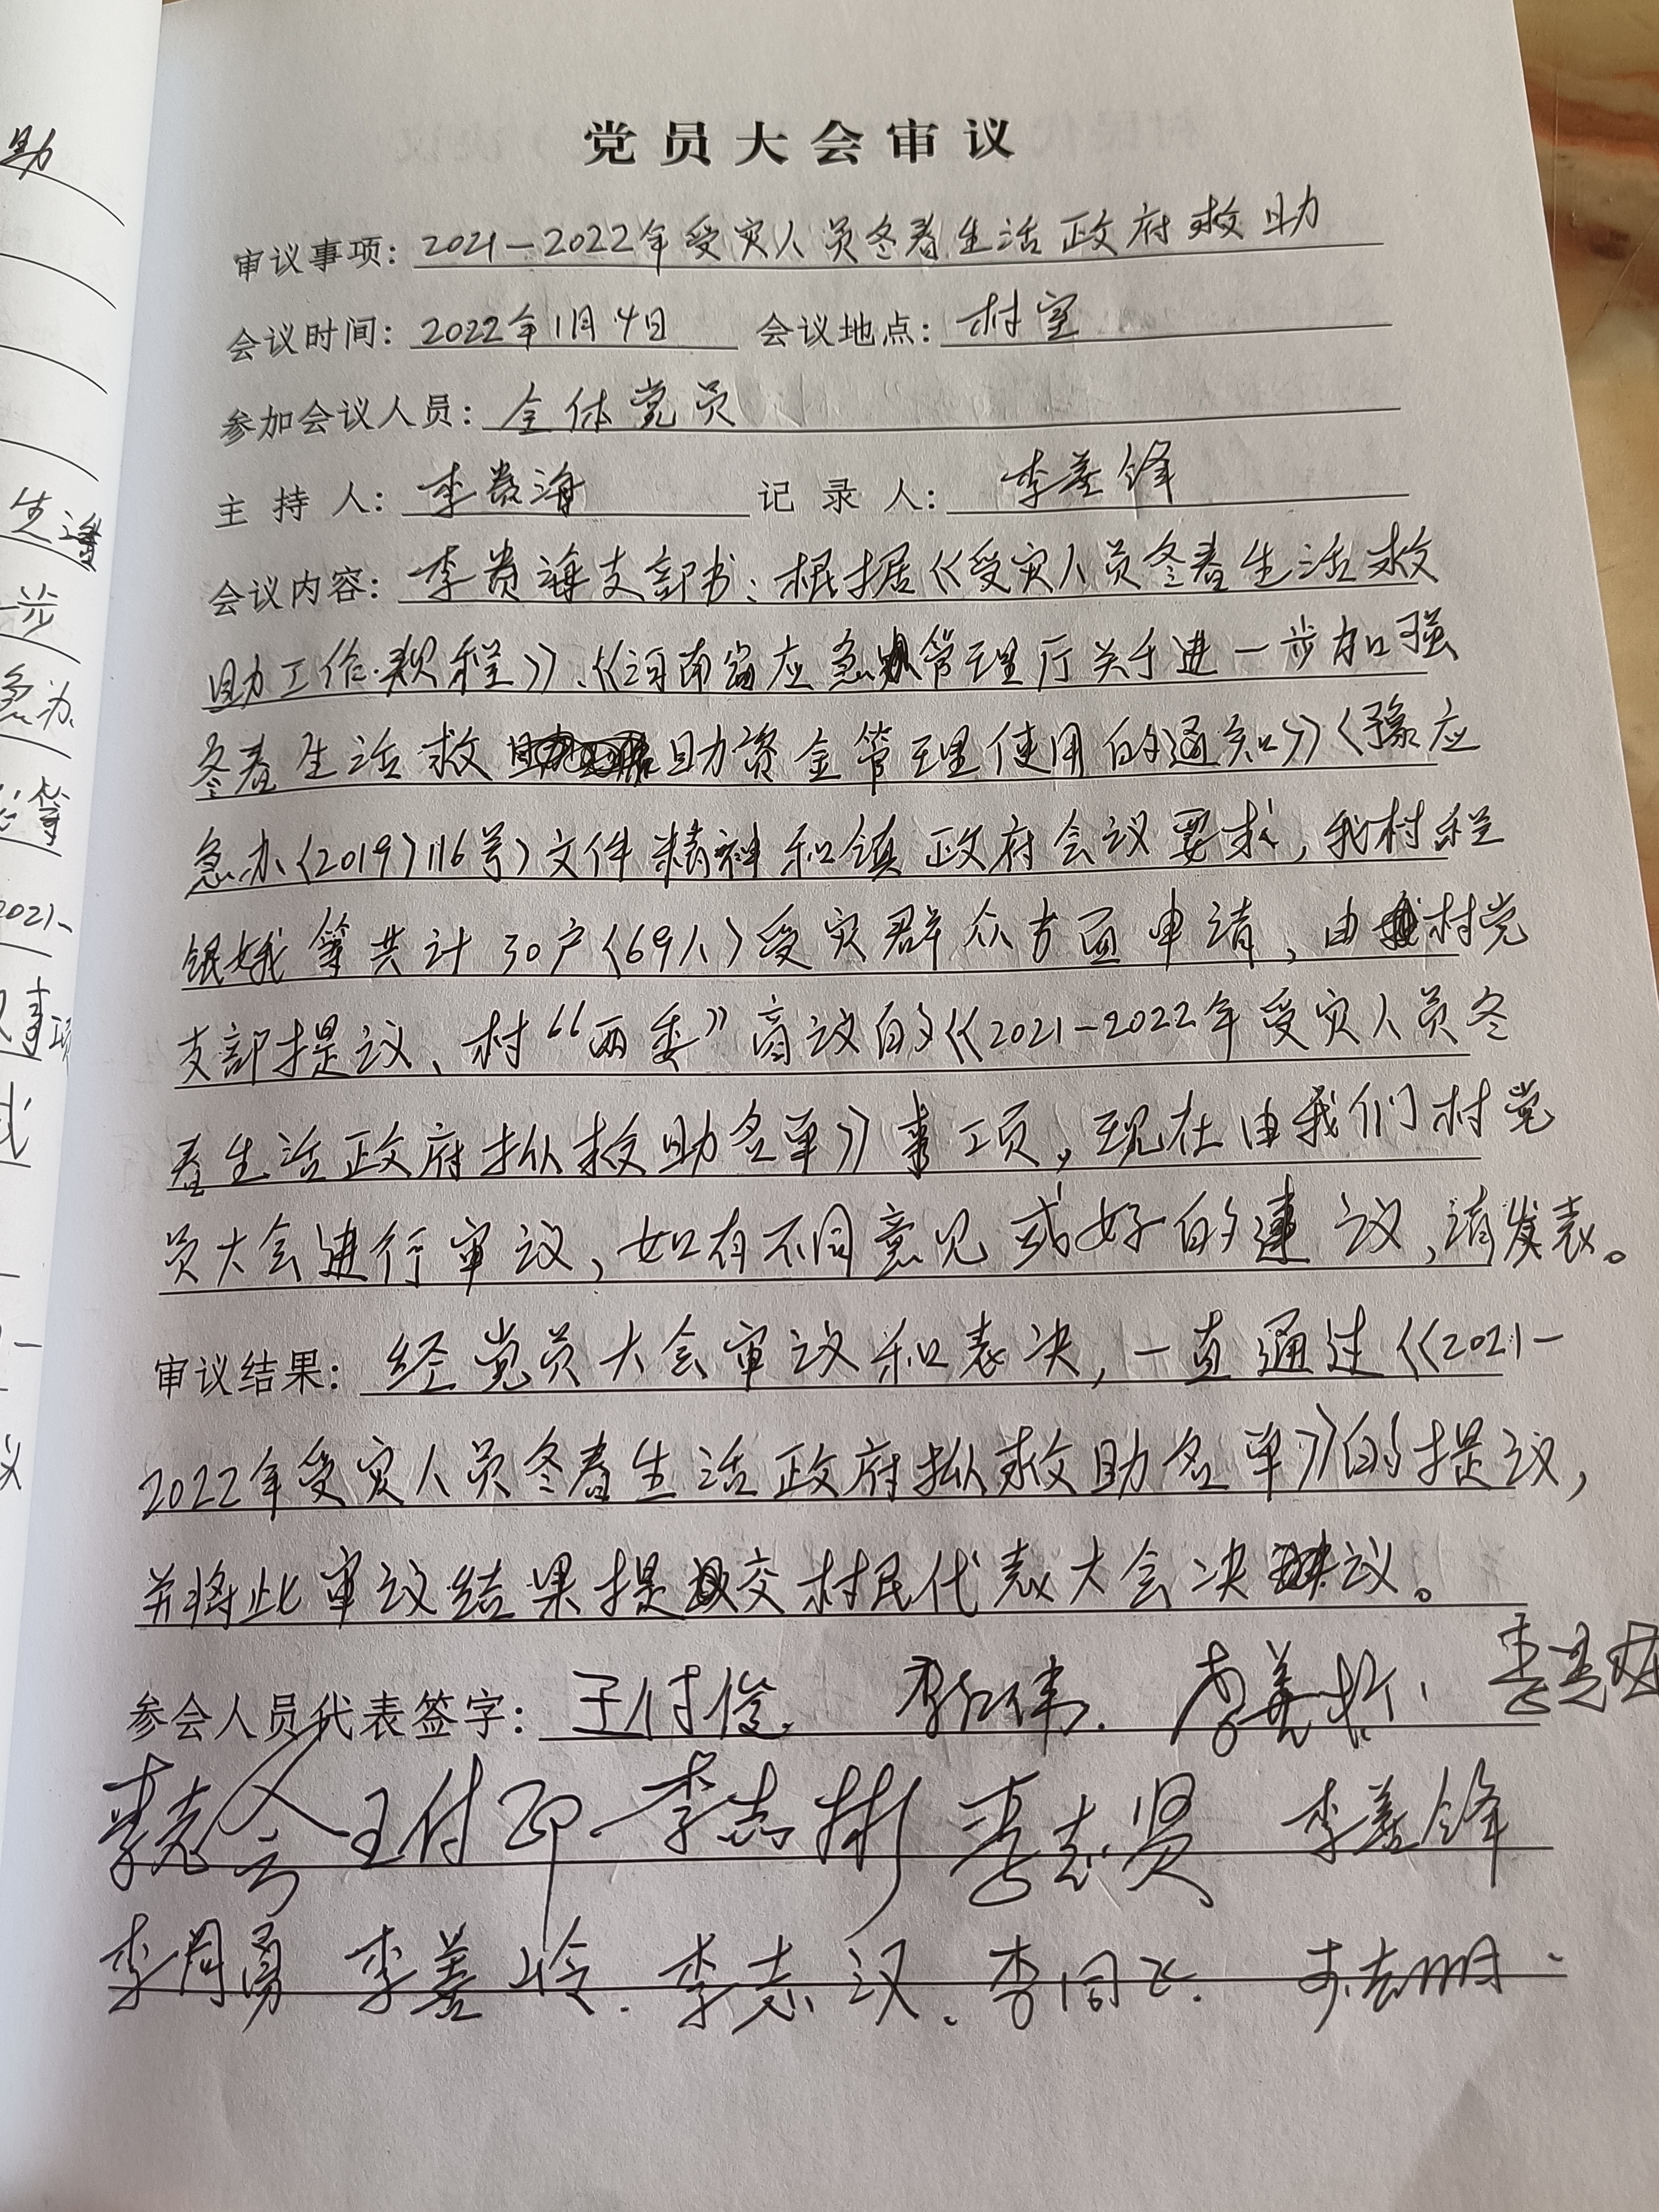 党员大会审议
审议事项：2021-2022年受灾人员冬春生活政府救助
会议时间：2022年1月4日 会议地点：村室
参加会议人员：全体党员
主持人：李贵海 记录人：李善锋
会议内容：李贵海支部书：根据《受灾人员冬春生活救
助工作规程》、《河南省应急管理厅关于进一步加强
冬春生活救助资金管理使用的通知》〈豫应
急办〈2019〉116号〉文件精神和镇政府会议要求，我村程
银娥等共计30户〈69人〉受灾群众方面申请，由村党
支部提议、村“两委”商议的《2021-2022年受灾人员冬
春生活政府拟救助名单》事项，现在由我们村党
员大会进行审议，如有不同意见或好的建议，请发表。
审议结果：经党员大会审议和表决，一直通过《2021-
2022年受灾人员冬春生活政府拟救助名单》的提议，
并将此审议结果提交村民代表大会决议。
参会人员代表签字：王付俊 李善
王付 李志彬 李志贤 李善锋
李同勇 李善岭 李志汉 李同飞
助
生
一步
急办
等
2021-
事项
议